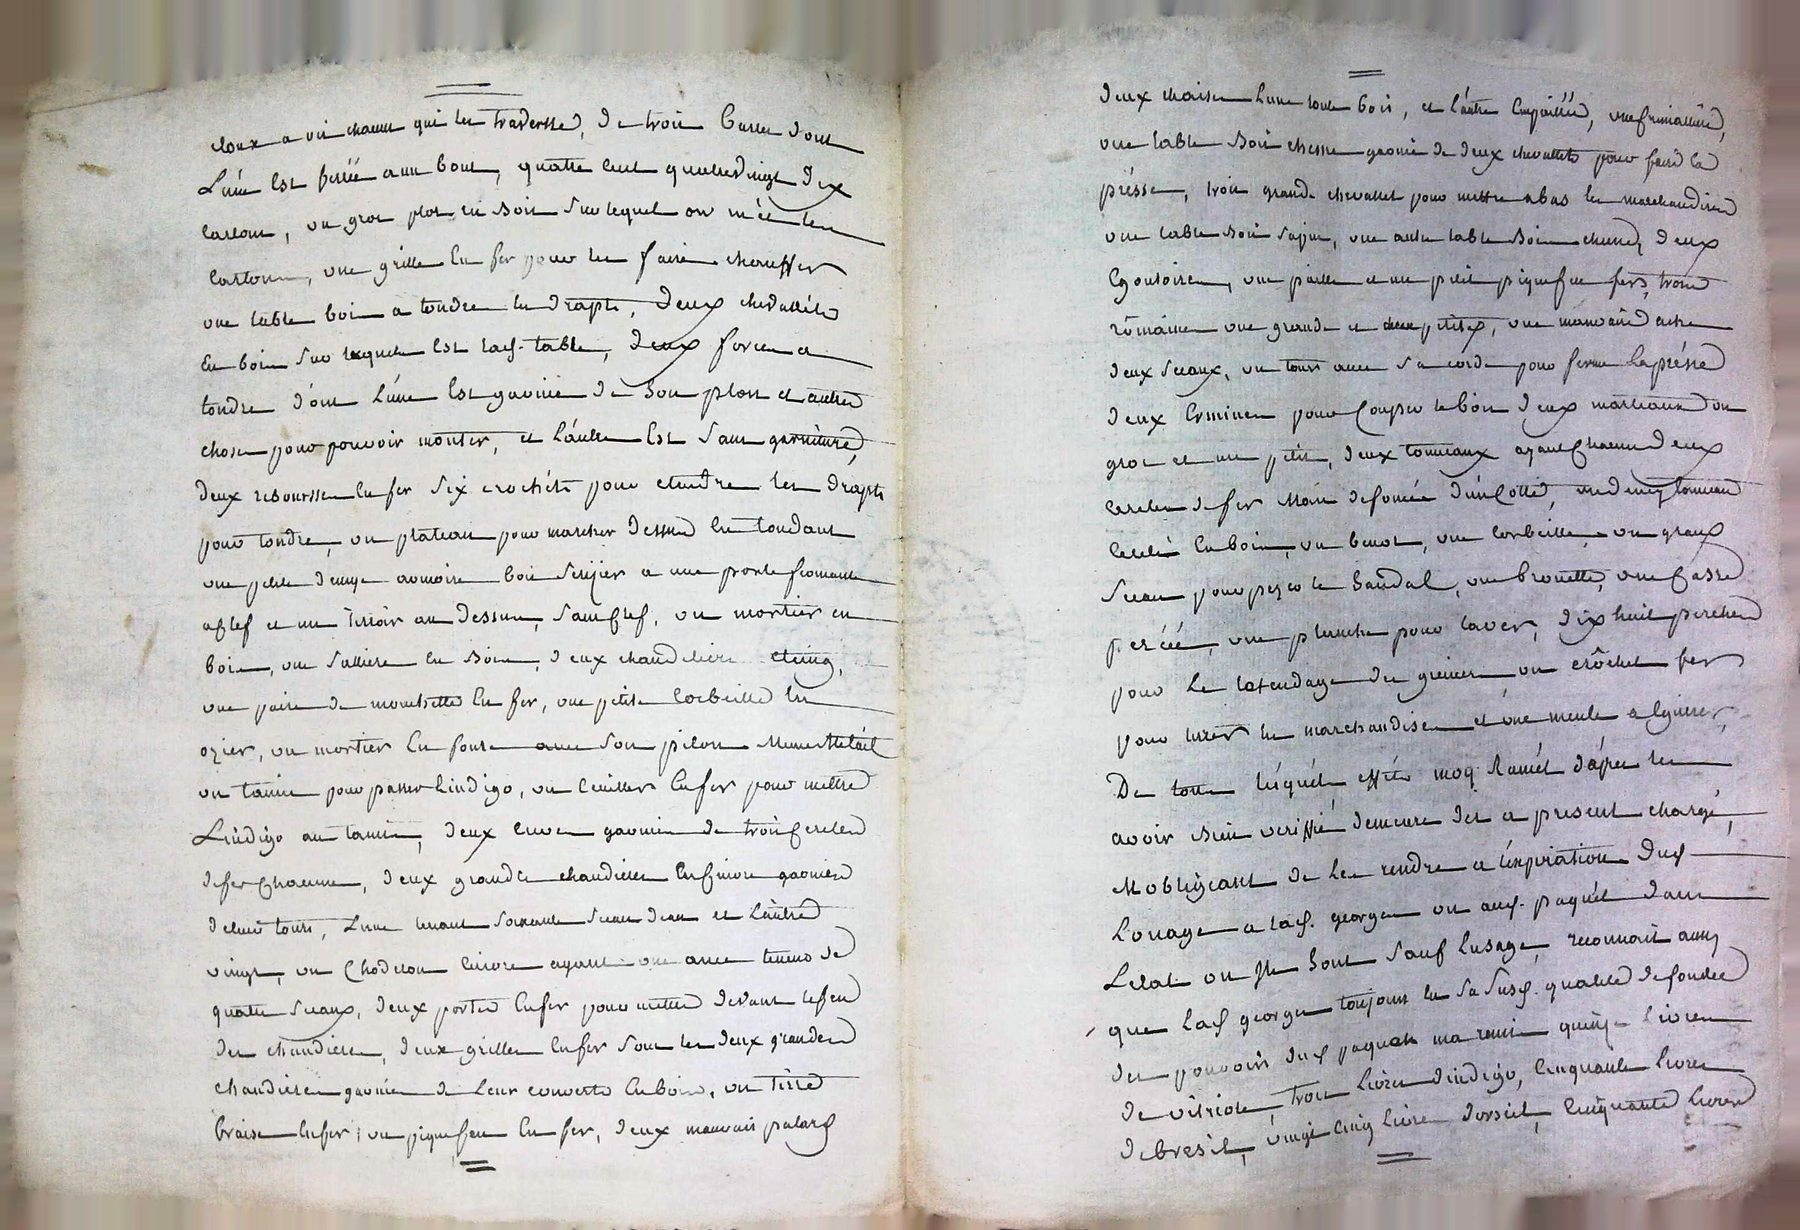 cloux a vis chacun qui les traversse, de trois barres dont
L'une Est persée a un bout, quatre cent quatrevingt dix
cartons, un gros plot en Bois sur lequel on met les
cartons, une grille En fer pour les faire chouffer
une table bois a tondre les drapts, deux chevallets
En bois sur lequels Est lad. table, deux forces a
tondre d'ont L'une Est garnie de Son plon et autres
choses pour pouvoir monter, et L'autre Est Sans garniture,
deux reboursses En fer Six crochets pour etendre les drapts
pour tondre, un plateau pour marcher dessus En tondant
une petite demye armoire bois Sapier a une porte fermante
a Clef et un Tirroir au dessus, Sans Clef, un mortier en
bois, une Salliere En Bois, deux chandeliers
une paire de mouchettes En fer, une petite Corbeille En
ozier, un mortier En fonte avec Son pilon Meme Metail
un tamis pour passer Lindigo, un Cuiller En fer pour mettre
L'indigo au tamis, deux Cuves garnies de trois Cercles
de fer Chacune, deux grandes chaudieres En Cuivre garnies
de leur tours, L'une tenant Soixante Seaux d'eau et L'autre
vingt, un Chodron Cuivre ayant une ance tenent de
quatre Seaux, deux portes En fer pour mettre devant le feu
des chaudieres, deux grilles En fer Sous les deux grandes
chaudieres garnies de Leur couverts En bois, un tirre
braise En fer, un piquefeu En fer, deux mauvais palars
deux chaises L'une toute bois, et L'autre Empaillée,
une table Bois chesne garnie de deux chevallets pour faire la
présse, trois grands chevallets pour mettre abas les marchandises
une table Bois Sapin, une autre table Bois chesne, deux
Egoutoires, une paelle et un petit piquefeu fers, trois
romaines une grande et deux petites, une mauvaise ache
deux Seaux, un tours avec Sa corde pour ferme la présse
deux Ermines pour Couper le bois deux marteaux don
gros et un petit, deux tonneaux ayant Chacun deux
Cercles de fer Mais defoncée d'un Cotté, un demy tonneau
Cerclé En bois, un benot, une Corbeille, un graux
Seau pour pezer le Sandal, une brouette, une Casse
persée, une planche pour laver, dix huit perches
pour Le latendage des greniers, un crôchet fer
pour tirer les marchandises et une meule a Eguiser,
De tous lesquéls effets moq Ramél d'aprés les
avoir Bien veriffié demeure des a present chargé,
M obligeant de Les rendre a l'expiration Dud
Louage a lad. george ou aud. paquét dans
L'etat ou Ils Sont Sauf Lusage, reconnait aussy
que Lad george toujours En Sa Susd. qualité de fondée
des pouvoirs dud paquet ma remis quinze livres
de vitriole, Trois Livres d'indigo, Cinquante Livres
de bresil, vingt cinq Livres d'orseil, Cinquante Livres